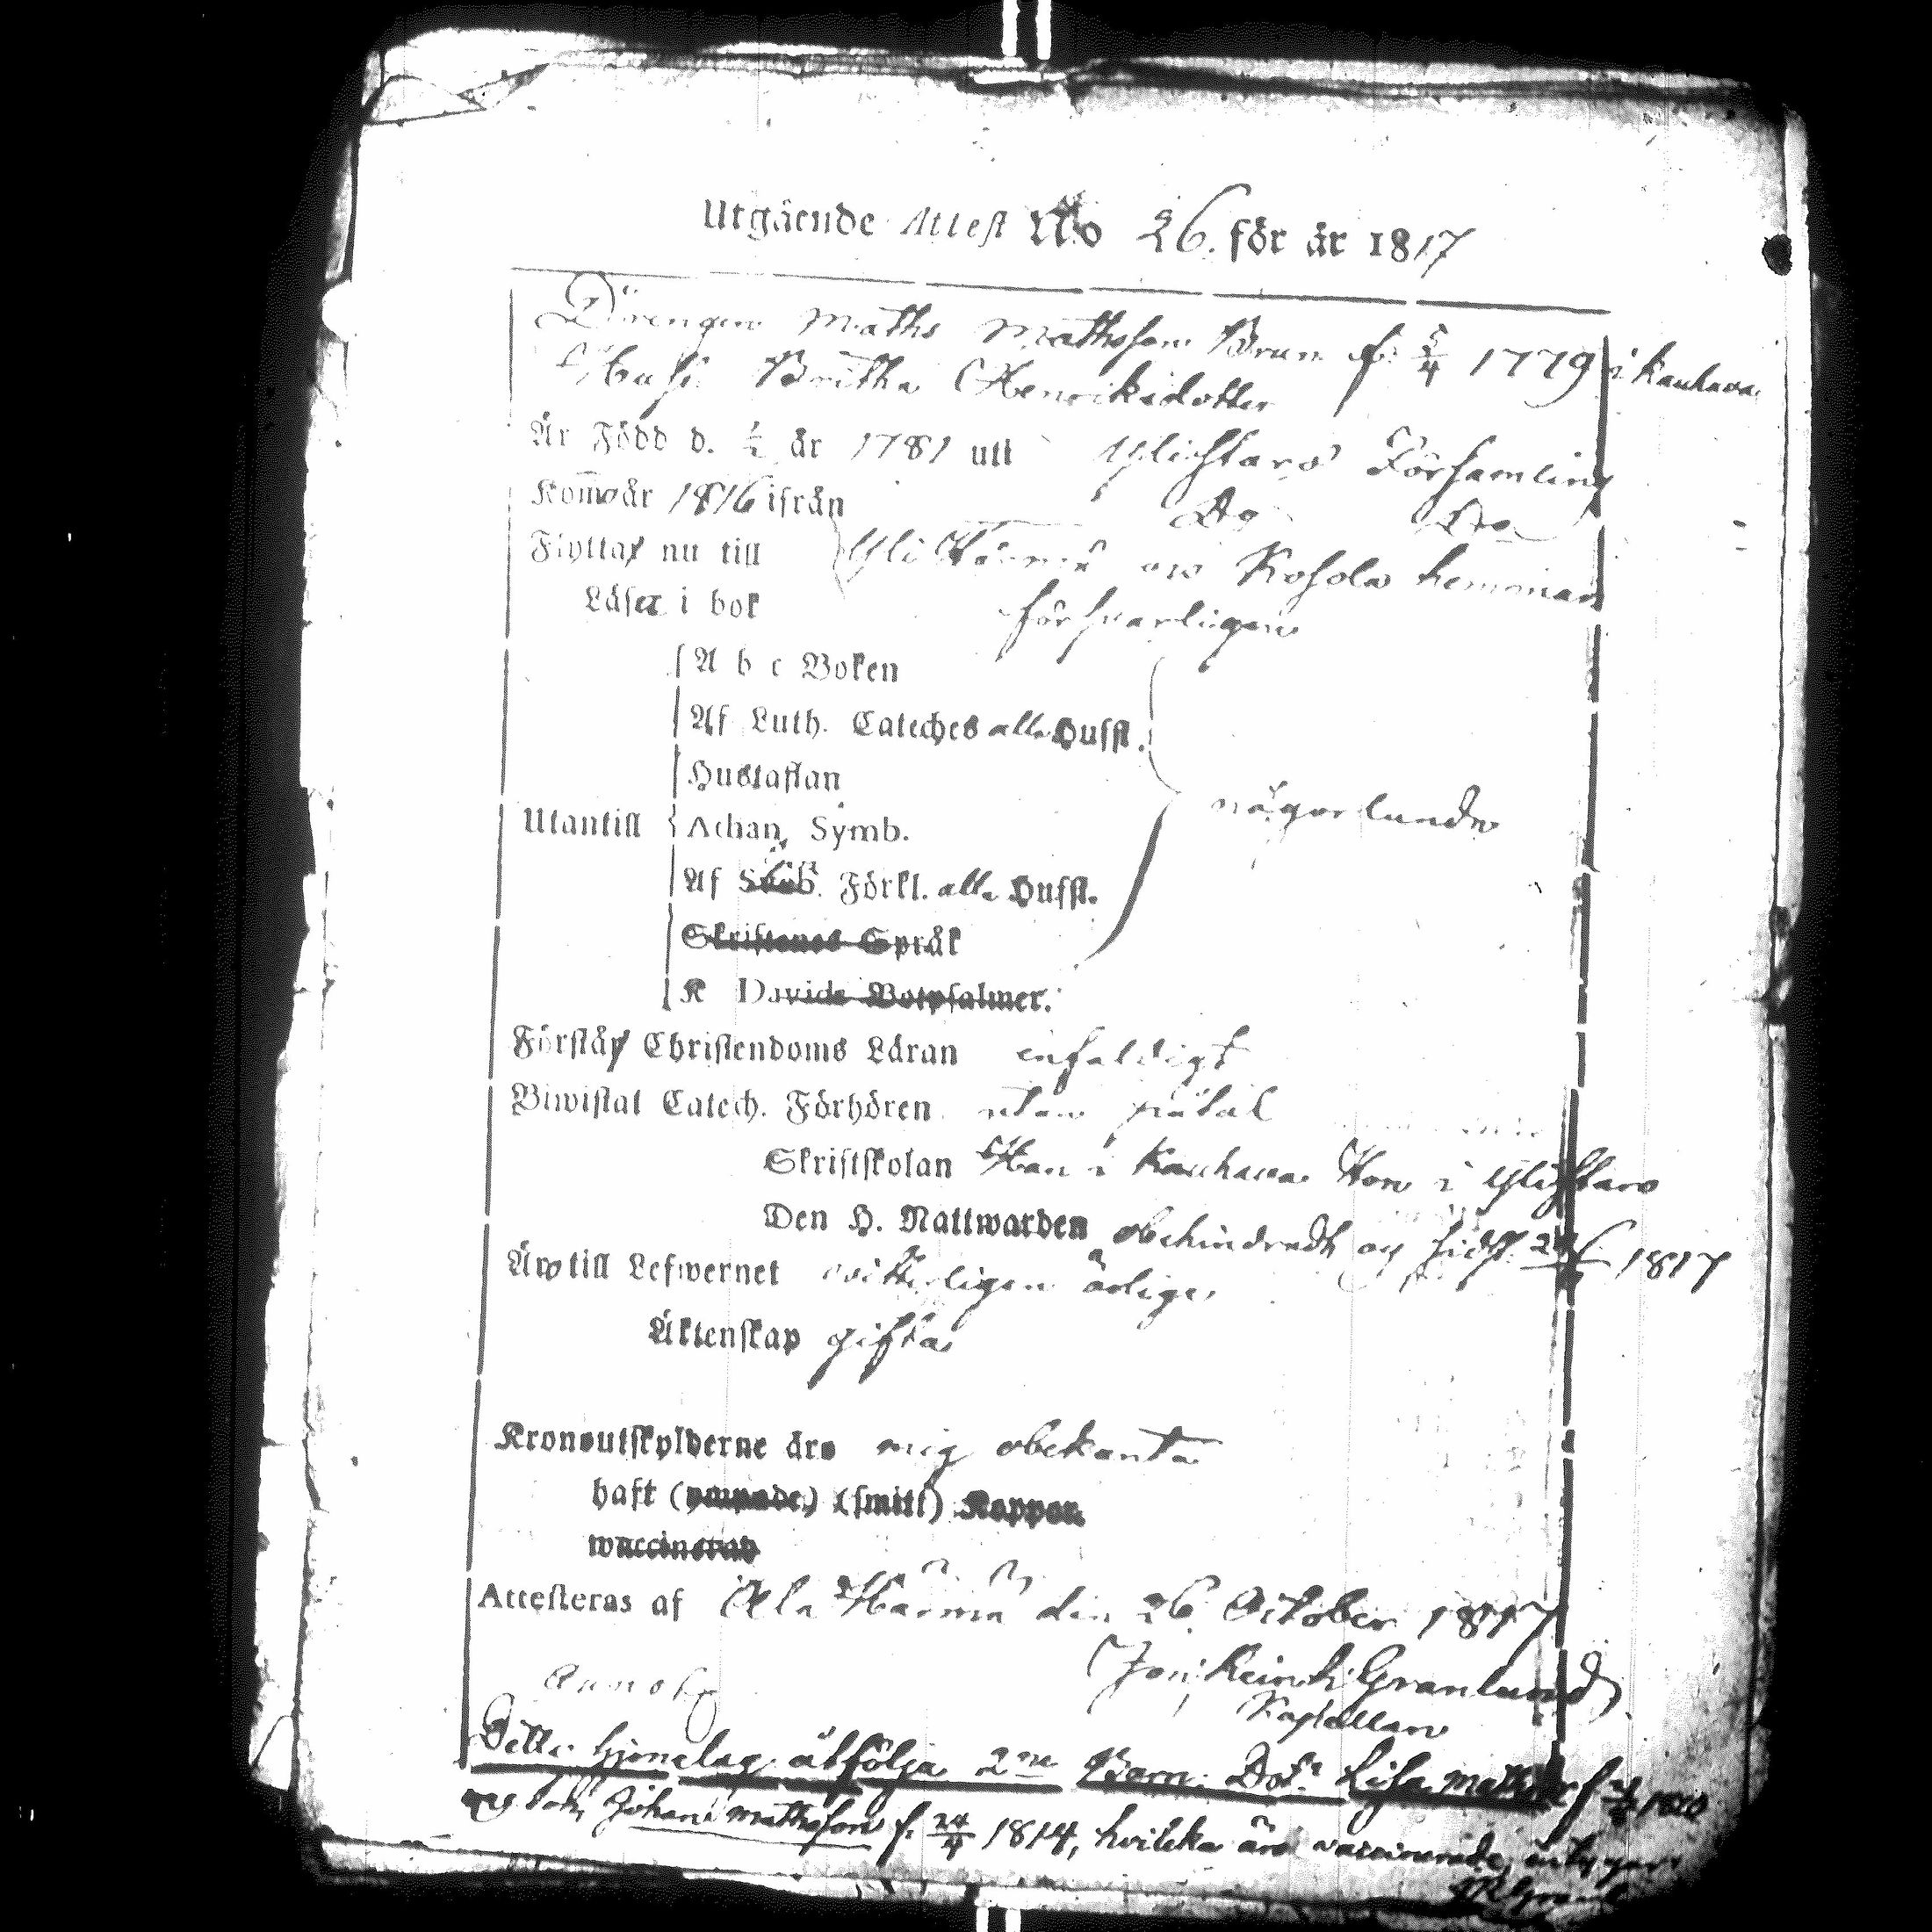 Utgående Attest No 26. för år 1817
Drengen Maths Mathsson Brun f. 5/4 1779 i Kauhava
Hust. Britha Henriksdotter
Är Född d. år 1781 uti Ylistaro Församling
Kom år 1816 ifrån Do
Flytta nu till Yli Härmä Kosola hemman
Läsa i bok försvarligen
A b c Boken
Af Luth. Cateches alla Hufst.
Hustaflan
Utantill Athan. Symb. någorlunda
Af Förkl. alla Hufst.
Skriftenes Språk
K Davids Botpsalmer.
Förstå Christendoms Läran enfaldigt
Biwistat Catech. Förhören utan påtal
Skriftskolan Han i Kauhava Hon i Ylistaro
Den H. Nattwarden obehindradt og sidst 1817
Äro till Lefwernet witterligen ärliga
Äktenskap gifta
Kronoutskylderne äro mig obekanta
haft (ympade) (smitt) Koppor
waccinerad
Attesteras af Ala Härmä den 26 October 1817
Joh. Heinr. Granlund
Kapellan
Detta hjonelag åtfölja 2ne Barn: Dotr Lisa f. 1810
Johan Mathsson f. 24/4 1814, hvilcka äro vaccinerade